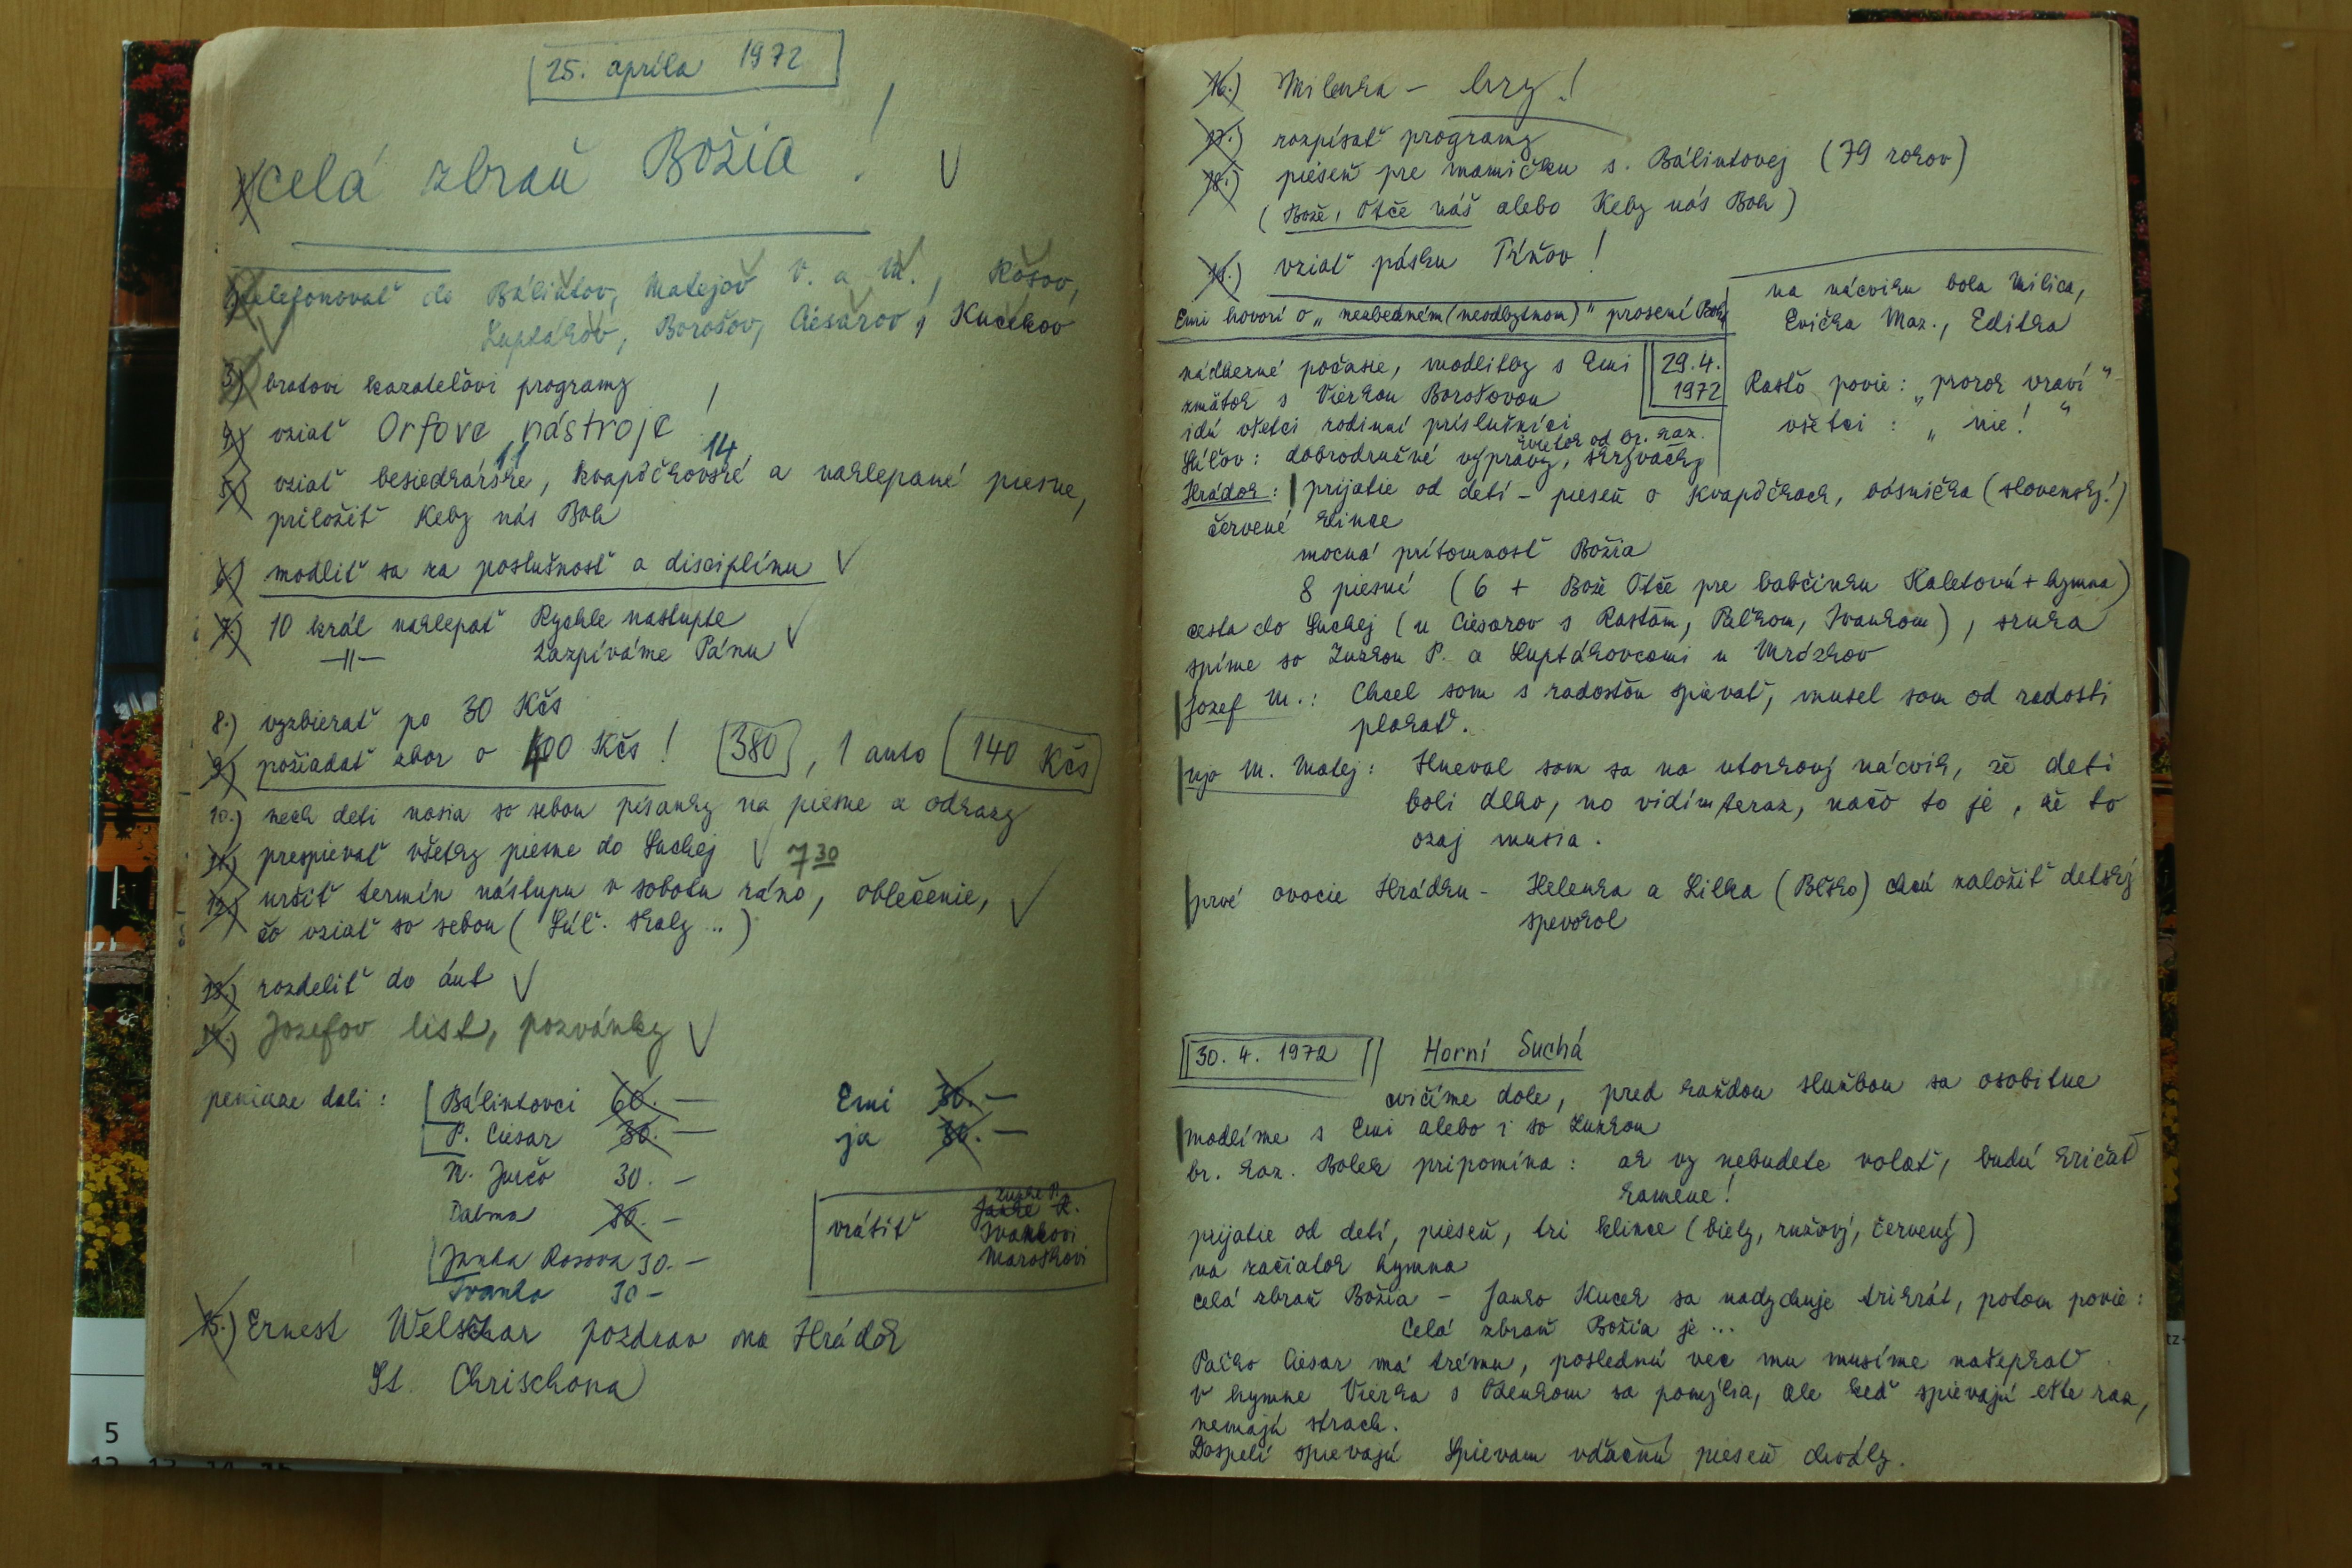 25. apríla 1972
1.) Celá zbraň Božia !
2.) telefonovať do Bálintov, Matejov V. a M., Rósov,
Luptákov, Borošov, Ciesarov, Kucekov
3.) bratovi kazateľovi programy
4.) vziať Orfove nástroje !
11 14
5.) vziať besiedkárske, kvapôčkovské a naklepané piesne,
priložiť Keby nás Boh
6.) modliť sa za poslušnosť a disciplínu
7.) 10 krát naklepať Rychle nastupte
—||— Zazpíváme Pánu
8.) vyzbierať po 30 Kčs
9.) požiadať zbor o 400 Kčs ! 380, 1 auto 140 Kčs
10.) nech deti nosia so sebou písanky na piesne a odkazy
11.) prespievať všetky piesne do Suchej 7 30
12.) určiť termín nástupu v sobotu ráno, oblečenie,
čo vziať so sebou (Súľ. skaly ...)
13.) rozdeliť do áut
14.) Jozefov list, pozvánky
peniaze dali : Bálintovci 60.— Emi 30.—
P. Ciesar 30.— ja 30.—
N. Jurčo 30.—
Dalma 30.—
vrátiť Zuzke P.
Janke R.
Ivankovi
Maroškovi
Janka Rosova 30.—
Ivanko 30—
15.) Ernest Welschar pozdrav na Hrádok
St. Chrischona
16.) Milenka — hry !
17.) rozpísať programy
18.) pieseň pre mamičku s. Bálintovej (79 rokov)
(Bože, Otče náš alebo Keby nás Boh)
19.) vziať pásku Tŕňov !
na nácviku bola Milica,
Evička Maz., Editka
Emi hovorí o „neubednem (neodbytnom)" prosení Boha
29.4.
1972
Rasťo povie : „prorok vraví"
všetci : „nie!"
nádherné počasie, modlitby s Emi
zmätok s Vierkou Borošovou
idú všetci rodinní príslušníci
kvietok od br. kaz.
Súľov : dobrodružné výpravy, skrývačky
Hrádok : prijatie od detí — pieseň o Kvapôčkach, básnička (slovensky!)
červené klince
mocná prítomnosť Božia
8 piesní (6 + Bože Otče pre babčinku Kaletovú + hymna)
cesta do Suchej (u Ciesarov s Rasťom, Paľkom, Ivankom), sruka
spíme so Zuzkou P. a Luptákovcami u Mrózkov
Jozef M. : Chcel som s radosťou spievať, musel som od radosti
plakať.
ujo M. Matej : Hneval som sa na utorkový nácvik, že deti
boli dlho, no vidím teraz, načo to je, že to
ozaj musia.
prvé ovocie Hrádku — Helenka a Lilka (Bčko) chcú založiť detský
spevokol
30. 4. 1972 Horní Suchá
cvičíme dole, pred každou službou sa osobitne
modlíme s Emi alebo i so Zuzkou
br. kaz. Bolek pripomína : ak vy nebudete volať, budú kričať
kamene !
prijatie od detí, pieseň, tri klince (biely, ružový, červený)
na začiatok hymna
Celá zbraň Božia — Janko Kucek sa nadychuje trikrát, potom povie :
Celá zbraň Božia je ...
Paľko Ciesar má trému, poslednú vec mu musíme našepkať.
V hymne Vierka s Zdenkom sa pomýlia, ale keď spievajú ešte raz,
nemajú strach.
Dospelí spievajú Spievam vďačnú pieseň chvály.